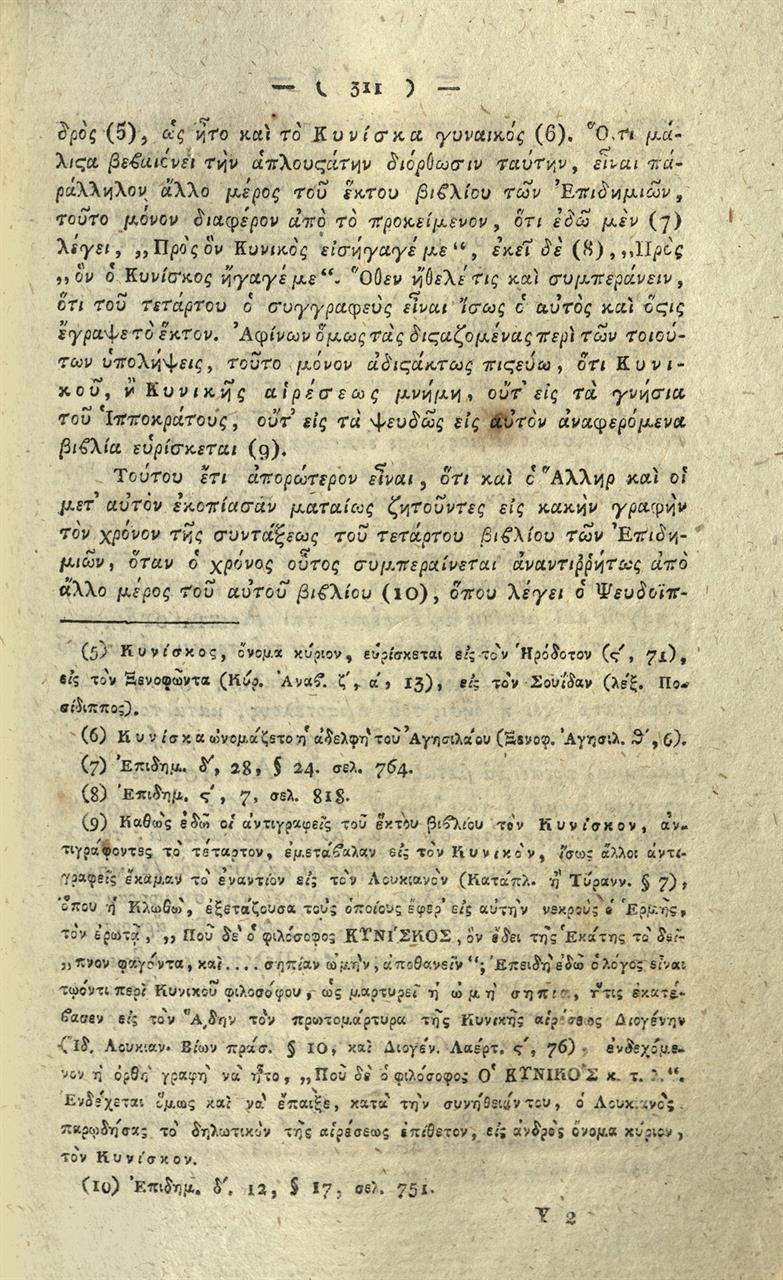 — ( 311 ) —
δρὸς (5), ὡς ἦτο καὶ τὸ Κυνίσκα γυναικός (6). Ὅ,τι μά-
λιϛα βεβαιόνει τὴν ἁπλουϛάτην διόρθωσιν ταύτην, εἶναι πα-
ράλληλον ἄλλο μέρος τοῦ ἕκτου βιβλίου τῶν Ἐπιδημιῶν,
τοῦτο μόνον διαφέρον ἀπὸ τὸ προκείμενον, ὅτι ἐδῶ μὲν (7)
λέγει, „Πρὸς ὃν Κυνικὸς εἰσήγαγέ με“, ἐκεῖ δὲ (8), „Πρὸς
„ὃν ὁ Κυνίσκος ἤγαγέ με“. Ὅθεν ἤθελέ τις καὶ συμπεράνειν,
ὅτι τοῦ τετάρτου ὁ συγγραφεὺς εἶναι ἴσως ὁ αὐτὸς καὶ ὅϛις
ἔγραψε τὸ ἕκτον. Ἀφίνων ὅμως τὰς διϛαζομένας περὶ τῶν τοιού-
των ὑπολήψεις, τοῦτο μόνον ἀδιϛάκτως πιϛεύω, ὅτι Κυνι-
κοῦ, ἢ Κυνικῆς αἱρέσεως μνήμη, οὔτ' εἰς τὰ γνήσια
τοῦ Ἱπποκράτους, οὔτ' εἰς τὰ ψευδῶς εἰς αὐτὸν ἀναφερόμενα
βιβλία εὑρίσκεται (9).
Τούτου ἔτι ἀπορώτερον εἶναι, ὅτι καὶ ὁ Ἄλληρ καὶ οἱ
μετ' αὐτὸν ἐκοπίασαν ματαίως ζητοῦντες εἰς κακὴν γραφὴν
τὸν χρόνον τῆς συντάξεως τοῦ τετάρτου βιβλίου τῶν Ἐπιδη-
μιῶν, ὅταν ὁ χρόνος οὗτος συμπεραίνεται ἀναντιῤῥήτως ἀπὸ
ἄλλο μέρος τοῦ αὐτοῦ βιβλίου (10), ὅπου λέγει ὁ Ψευδοϊπ-
(5) Κυνίσκος, ὄνομα κύριον, εὑρίσκεται εἰς τὸν Ἡρόδοτον (ϛ', 71),
εἰς τὸν Ξενοφῶντα (Κύρ. Ἀναβ. ζ', α', 13), εἰς τὸν Σουΐδαν (λέξ. Πο-
σίδιππος).
(6) Κυνίσκα ὠνομάζετο ἡ ἀδελφὴ τοῦ Ἀγησιλάου (Ξενοφ. Ἀγησιλ. θ', 6).
(7) Ἐπιδημ. δ', 28, § 24. σελ. 764.
(8) Ἐπιδημ. ϛ', 7, σελ. 818.
(9) Καθὼς ἐδῶ οἱ ἀντιγραφεῖς τοῦ ἕκτου βιβλίου τὸν Κυνίσκον, ἀν-
τιγράφοντες τὸ τέταρτον, ἐμετάβαλαν εἰς τὸν Κυνικὸν, ἴσως ἄλλοι ἀντι-
γραφεῖς ἔκαμαν τὸ ἐναντίον εἰς τὸν Λουκιανὸν (Κατάπλ. ἢ Τύρανν. § 7),
ὅπου ἡ Κλωθὼ, ἐξετάζουσα τοὺς ὁποίους ἔφερ' εἰς αὐτὴν νεκροὺς ὁ Ἑρμῆς,
τὸν ἐρωτᾷ, „Ποῦ δὲ ὁ φιλόσοφος ΚΥΝΙΣΚΟΣ, ὃν ἔδει τῆς Ἑκάτης τὸ δεῖ-
„πνον φαγόντα, καὶ.... σηπίαν ὠμὴν, ἀποθανεῖν“; Ἐπειδὴ ἐδῶ ὁ λόγος εἶναι
τῳόντι περὶ Κυνικοῦ φιλοσόφου, ὡς μαρτυρεῖ ἡ ὠμὴ σηπία, ἥτις ἐκατέ-
βασεν εἰς τὸν ᾍδην τὸν πρωτομάρτυρα τῆς Κυνικῆς αἱρέσεως Διογένην
(Ἰδ. Λουκιαν. Βίων πρᾶσ. § 10, καὶ Διογέν. Λαέρτ. ϛ', 76) ἐνδεχόμε-
νον ἡ ὀρθὴ γραφὴ νὰ ἦτο, „Ποῦ δὲ ὁ φιλόσοφος Ὁ ΚΥΝΙΚΟΣ κ. τ. λ.“.
Ἐνδέχεται ὅμως καὶ νὰ ἔπαιξε, κατὰ τὴν συνήθειάν του, ὁ Λουκιανὸς,
παρῳδήσας τὸ δηλωτικὸν τῆς αἱρέσεως ἐπίθετον, εἰς ἀνδρὸς ὄνομα κύριον,
τὸν Κυνίσκον.
(10) Ἐπιδημ. δ'. 12, § 17, σελ. 751.
Υ 2